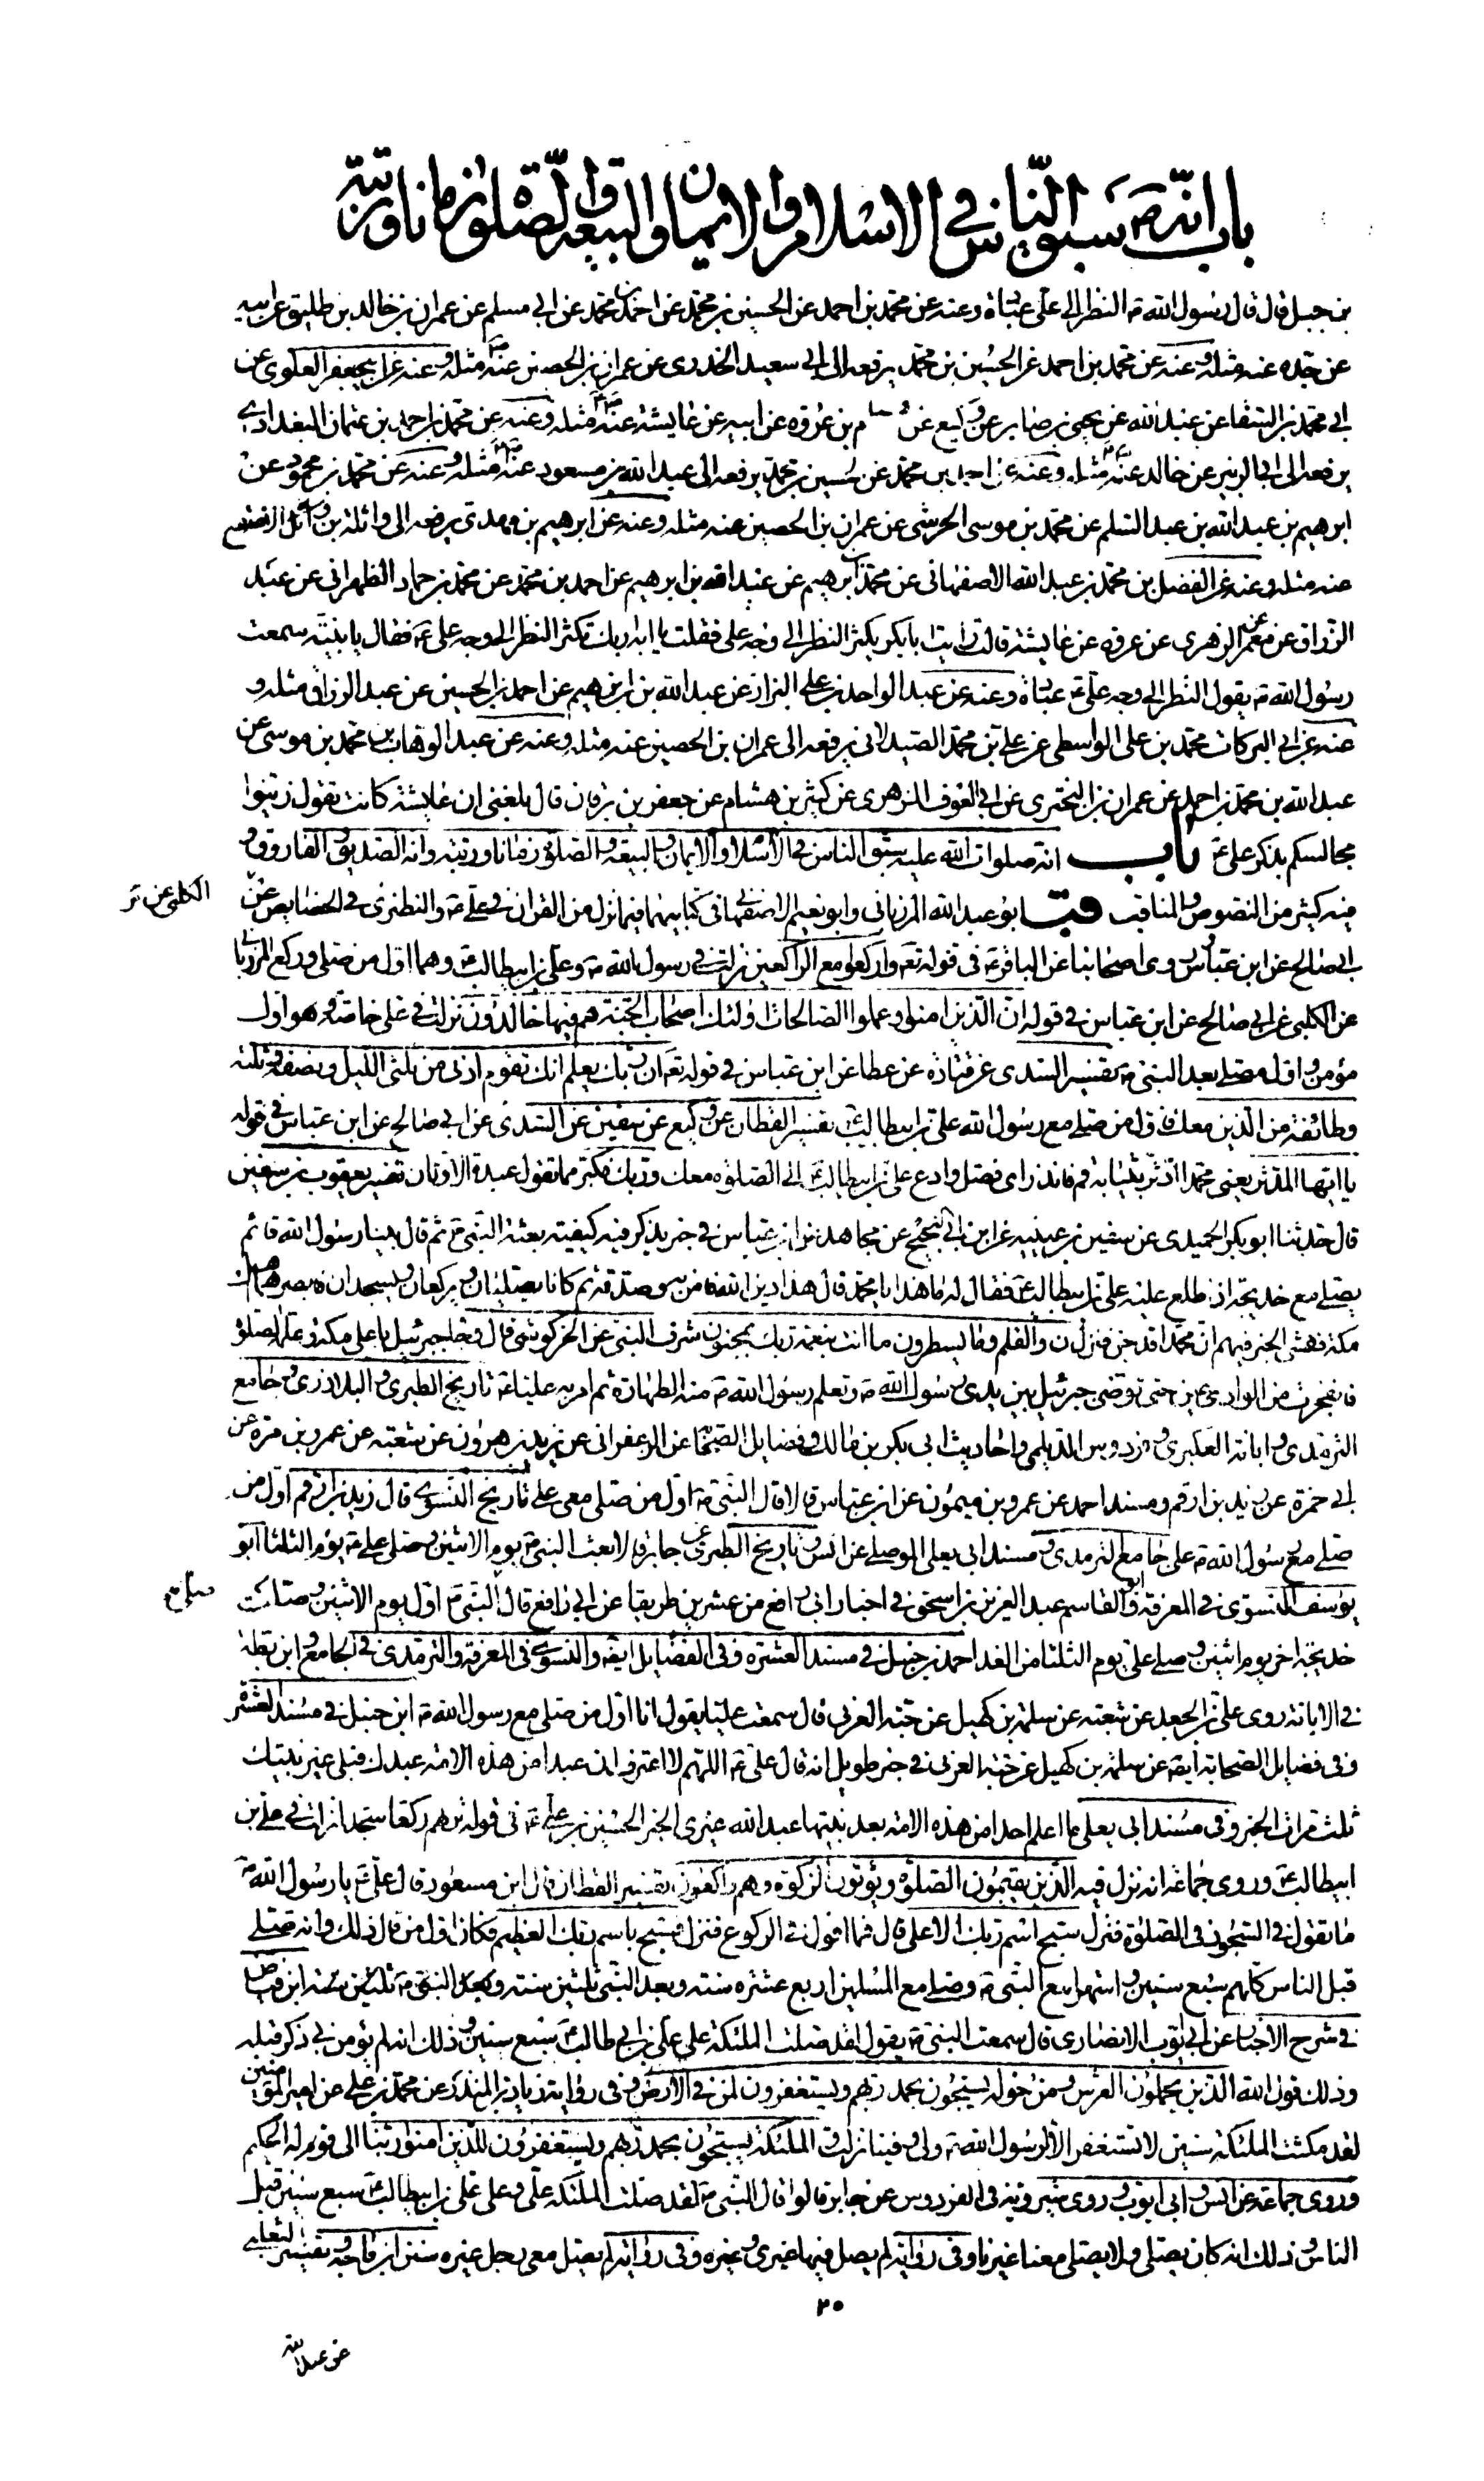 باب انه ص سبق الناس في الاسلام والايمان والبيعة والصلوة زمانا ورتبة
بن جبل قال قال رسول الله ص النظر الى علي عبادة وعنه عن محمد بن احمد عن الحسين بن محمد عن احمد بن محمد عن ابي مسلم عن عمران بن خالد بن طليق عن ابيه
عن جده عنه مثله وعنه عن محمد بن احمد عن الحسين بن محمد يرفعه الى ابي سعيد الخدري عن عمران بن الحصين عنه ص مثله وعنه عن ابي جعفر العلوي عن
ابي محمد بن السقا عن عبد الله عن يحيى بن صابر عن وكيع عن م بن عروه عن ابيه عن عايشة عنه ص مثله وعنه عن محمد بن احمد بن عثمان البغدادي
يرفعه الى ابي الزبير عن خالد عنه ص مثله وعنه عن احمد بن محمد عن حسين بن محمد يرفعه الى عبد الله بن مسعود عنه ص مثله وعنه عن محمد بن محمود عن
ابرهيم بن عبد الله بن عبد السلم عن محمد بن موسى الحرشي عن عمران بن الحصين عنه مثله وعنه عن ابرهيم بن مهدي يرفعه الى واثلة بن الاسقع
عنه مثله وعنه عن الفضل بن محمد بن عبد الله الاصفهاني عن محمد بن ابرهيم عن عبد الله بن ابرهيم عن احمد بن محمد عن محمد بن حماد الظهراني عن عبد
الرزاق عن معمر عن الزهري عن عروه عن عايشة قالت رايت ابا بكر يكثر النظر الى وجه علي فقلت يا ابه رايتك تكثر النظر الى وجه علي ع فقال يا بنية سمعت
رسول الله ص يقول النظر الى وجه علي ع عبادة وعنه عن عبد الواحد بن علي البزاز عن عبد الله بن ابرهيم عن احمد بن الحسين عن عبد الرزاق مثله و
عنه عن ابي البركات محمد بن علي الواسطي عن علي بن محمد الصيدلاني يرفعه الى عمران بن الحصين عنه مثله وعنه عن عبد الوهاب بن محمد بن موسى عن
عبد الله بن محمد بن احمد عن عمران بن البختري عن ابي العوف الزهري عن كثير بن هشام عن جعفر بن برقان قال بلغني ان عايشة كانت تقول زينوا
مجالسكم بذكر علي ع باب انه صلوات الله عليه سبق الناس في الاسلام والايمان والبيعة والصلوة زمانا ورتبة وانه الصديق والفاروق و
فيه كثير من النصوص والمناقب قب ابو عبد الله المرزباني وابو نعيم الاصفهاني في كتابيهما فيما نزل من القران في علي ع والنطنزي في الخصايص عن
الكلبي عن
ابي صالح عن ابن عباس وروى اصحابنا عن الباقر ع في قوله تع واركعوا مع الراكعين نزلت في رسول الله ص وعلي بن ابيطالب ع وهما اول من صلى وركع المرزباني
عن الكلبي عن ابي صالح عن ابن عباس في قوله ان الذين امنوا وعملوا الصالحات اولئك اصحاب الجنة هم فيها خالدون نزلت في علي خاصة وهو اول
مؤمن واول مصلى بعد النبي ص تفسير السدي عن قتادة عن عطا عن ابن عباس في قوله تع ان ربك يعلم انك تقوم ادنى من ثلثي الليل ونصفه وثلثه
وطائفة من الذين معك فاول من صلى مع رسول الله علي بن ابيطالب ع تفسير القطان عن وكيع عن سفين عن السدي عن ابي صالح عن ابن عباس في قوله
يا ايها المدثر يعني محمدا ادثر بثيابه قم فانذر اي فصل وادع علي بن ابيطالب ع الى الصلوة معك وربك فكبر مما تقول عبدة الاوثان تفسير يعقوب بن سفين
قال حدثنا ابو بكر الحميدي عن سفين بن عيينة عن ابن ابي نجيح عن مجاهد عن ابن عباس في خبر يذكر فيه كيفية بعثة النبي ص ثم قال بينا رسول الله قائم
يصلي مع خديجة اذ طلع عليه علي بن ابيطالب ع فقال له ما هذا يا محمد قال هذا دين الله فامن به وصدقه ثم كانا يصليان ويركعان ويسجدان فابصرهما اهل
مكة ففشى الخبر فيهم ان محمدا قد جن فنزل ن والقلم وما يسطرون ما انت بنعمة ربك بمجنون شرف النبي عن الخركوشي قال وجاء جبرئيل باعلى مكة وعلمه الصلوة
فانفجرت من الوادي عين حتى توضى جبرئيل بين يدي رسول الله ص وتعلم رسول الله ص منه الطهارة ثم امر به عليا ع تاريخ الطبري والبلاذري وجامع
الترمذي وابانة العكبري وفردوس الديلمي واحاديث ابي بكر بن مالك وفضايل الصحابة عن الزعفراني عن يزيد بن هرون عن شعبة عن عمرو بن مرة عن
ابي حمزة عن زيد بن ارقم ومسند احمد عن عمرو بن ميمون عن ابن عباس قالا قال النبي ص اول من صلى معي علي تاريخ النسوي قال زيد بن ارقم اول من
صلى مع رسول الله ص علي جامع الترمذي ومسند ابي يعلى الموصلي عن انس وتاريخ الطبري عن جابر قالا بعث النبي ص يوم الاثنين وصلى علي ع يوم الثلثا ابو
يوسف النسوي في المعرفة وابو القاسم عبد العزيز بن اسحق في اخبار ابي رافع من عشرين طريقا عن ابي رافع قال النبي ص اول يوم الاثنين وصلت
خديجة اخر يوم اثنين وصلى علي يوم الثلثا من الغد احمد بن حنبل في مسند العشرة وفي الفضايل ايضا والنسوي في المعرفة والترمذي في الجامع وابن بطة
في الابانة روى علي بن الجعد عن شعبة عن سلمة بن كهيل عن حبة العرني قال سمعت عليا يقول انا اول من صلى مع رسول الله ص ابن حنبل في مسند العشرة
وفي فضايل الصحابة ايضا عن سلمة بن كهيل عن حبة العرني في خبر طويل انه قال علي ع اللهم لا اعترف ان عبدا من هذه الامة عبدك قبلي غير نبيك
ثلث مرات الخبر وفي مسند ابي يعلى ما اعلم احدا من هذه الامة بعد نبيها عبد الله غيري الخبر الحسين بن علي ع في قوله تريهم ركعا سجدا نزلت في علي بن
ابيطالب ع وروى جماعة انه نزل فيه الذين يقيمون الصلوة ويؤتون الزكوة وهم راكعون تفسير القطان قال ابن مسعود قال علي ع يا رسول الله ص
ما نقول في السجود في الصلوة فنزل سبح اسم ربك الاعلى قال فما اقول في الركوع فنزل فسبح باسم ربك العظيم فكان اول من قال ذلك وانه صلى
قبل الناس كلهم سبع سنين واشهرا مع النبي ص وصلى مع المسلمين اربع عشرة سنة وبعد النبي ثلثين سنة ابن فياض
في شرح الاخبار عن ابي ايوب الانصاري قال سمعت النبي ص يقول لقد صلت الملئكة علي وعلى علي بن ابي طالب ع سبع سنين وذلك انه لم يؤمن بي ذكر قبله
وذلك قول الله الذين يحملون العرش ومن حوله يسبحون بحمد ربهم ويستغفرون لمن في الارض وفي رواية زياد بن المنذر عن محمد بن علي عن امير المؤمنين
لقد مكثت الملئكة سنين لا تستغفر الا لرسول الله ص ولي وفينا نزلت والملئكة يسبحون بحمد ربهم ويستغفرون للذين امنوا ربنا الى قوله الحكيم
وروى جماعة عن انس وابي ايوب وروى شيرويه في الفردوس عن جابر قالوا قال النبي ص لقد صلت الملئكة علي وعلى علي بن ابيطالب ع سبع سنين قبل
الناس وذلك انه كان يصلي ولا يصلي معنا غيرنا وفي رواية لم يصل فيها غيري وغيره وفي رواية لم يصل معي رجل غيره سنن ابن ماجة وتفسير الثعلبي
٢٠
عن عبد الله